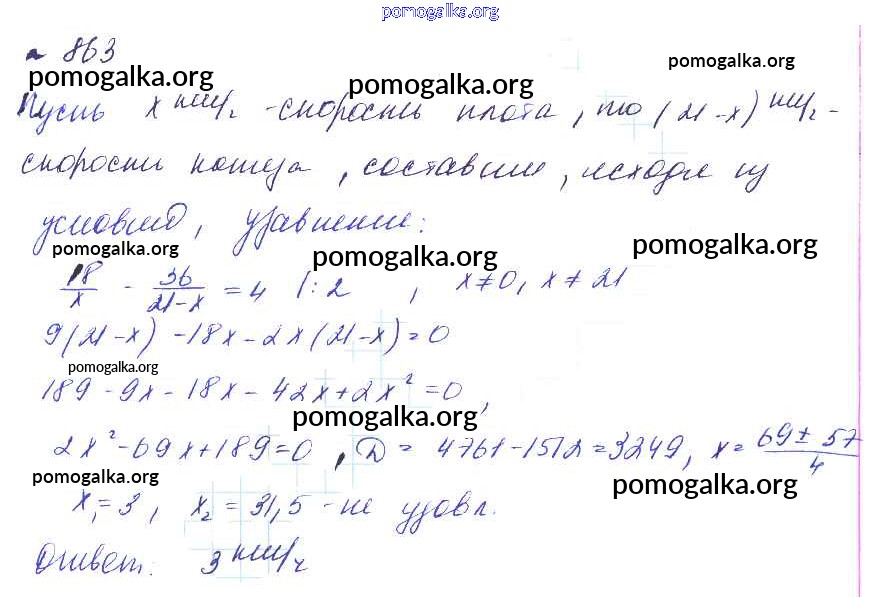 pomogalka.org
№ 863
pomogalka.org pomogalka.org pomogalka.org
Пусть x км/ч - скорость плота, то (21-x) км/ч -
скорость катера, составим, исходя из
условия, уравнение:
pomogalka.org pomogalka.org pomogalka.org
18/x - 36/(21-x) = 4 |:2 , x≠0, x≠21
9(21-x) - 18x - 2x(21-x) = 0
pomogalka.org
189 - 9x - 18x - 42x + 2x² = 0,
pomogalka.org
2x² - 69x + 189 = 0, D = 4761 - 1512 = 3249, x = (69 ± 57)/4
pomogalka.org pomogalka.org
x₁ = 3, x₂ = 31,5 - не удовл.
Ответ: 3 км/ч